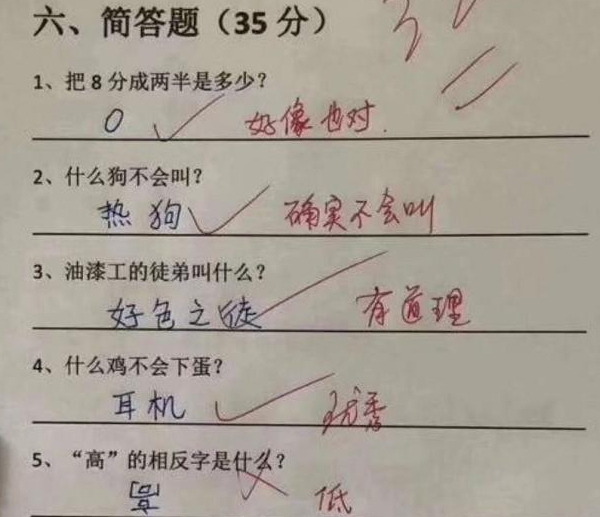 六、简答题（35 分）
1、把 8 分成两半是多少？
0 好像也对.
2、什么狗不会叫？
热狗 确实不会叫
3、油漆工的徒弟叫什么？
好色之徒 有道理
4、什么鸡不会下蛋？
耳机 优秀
5、“高”的相反字是什么？
低